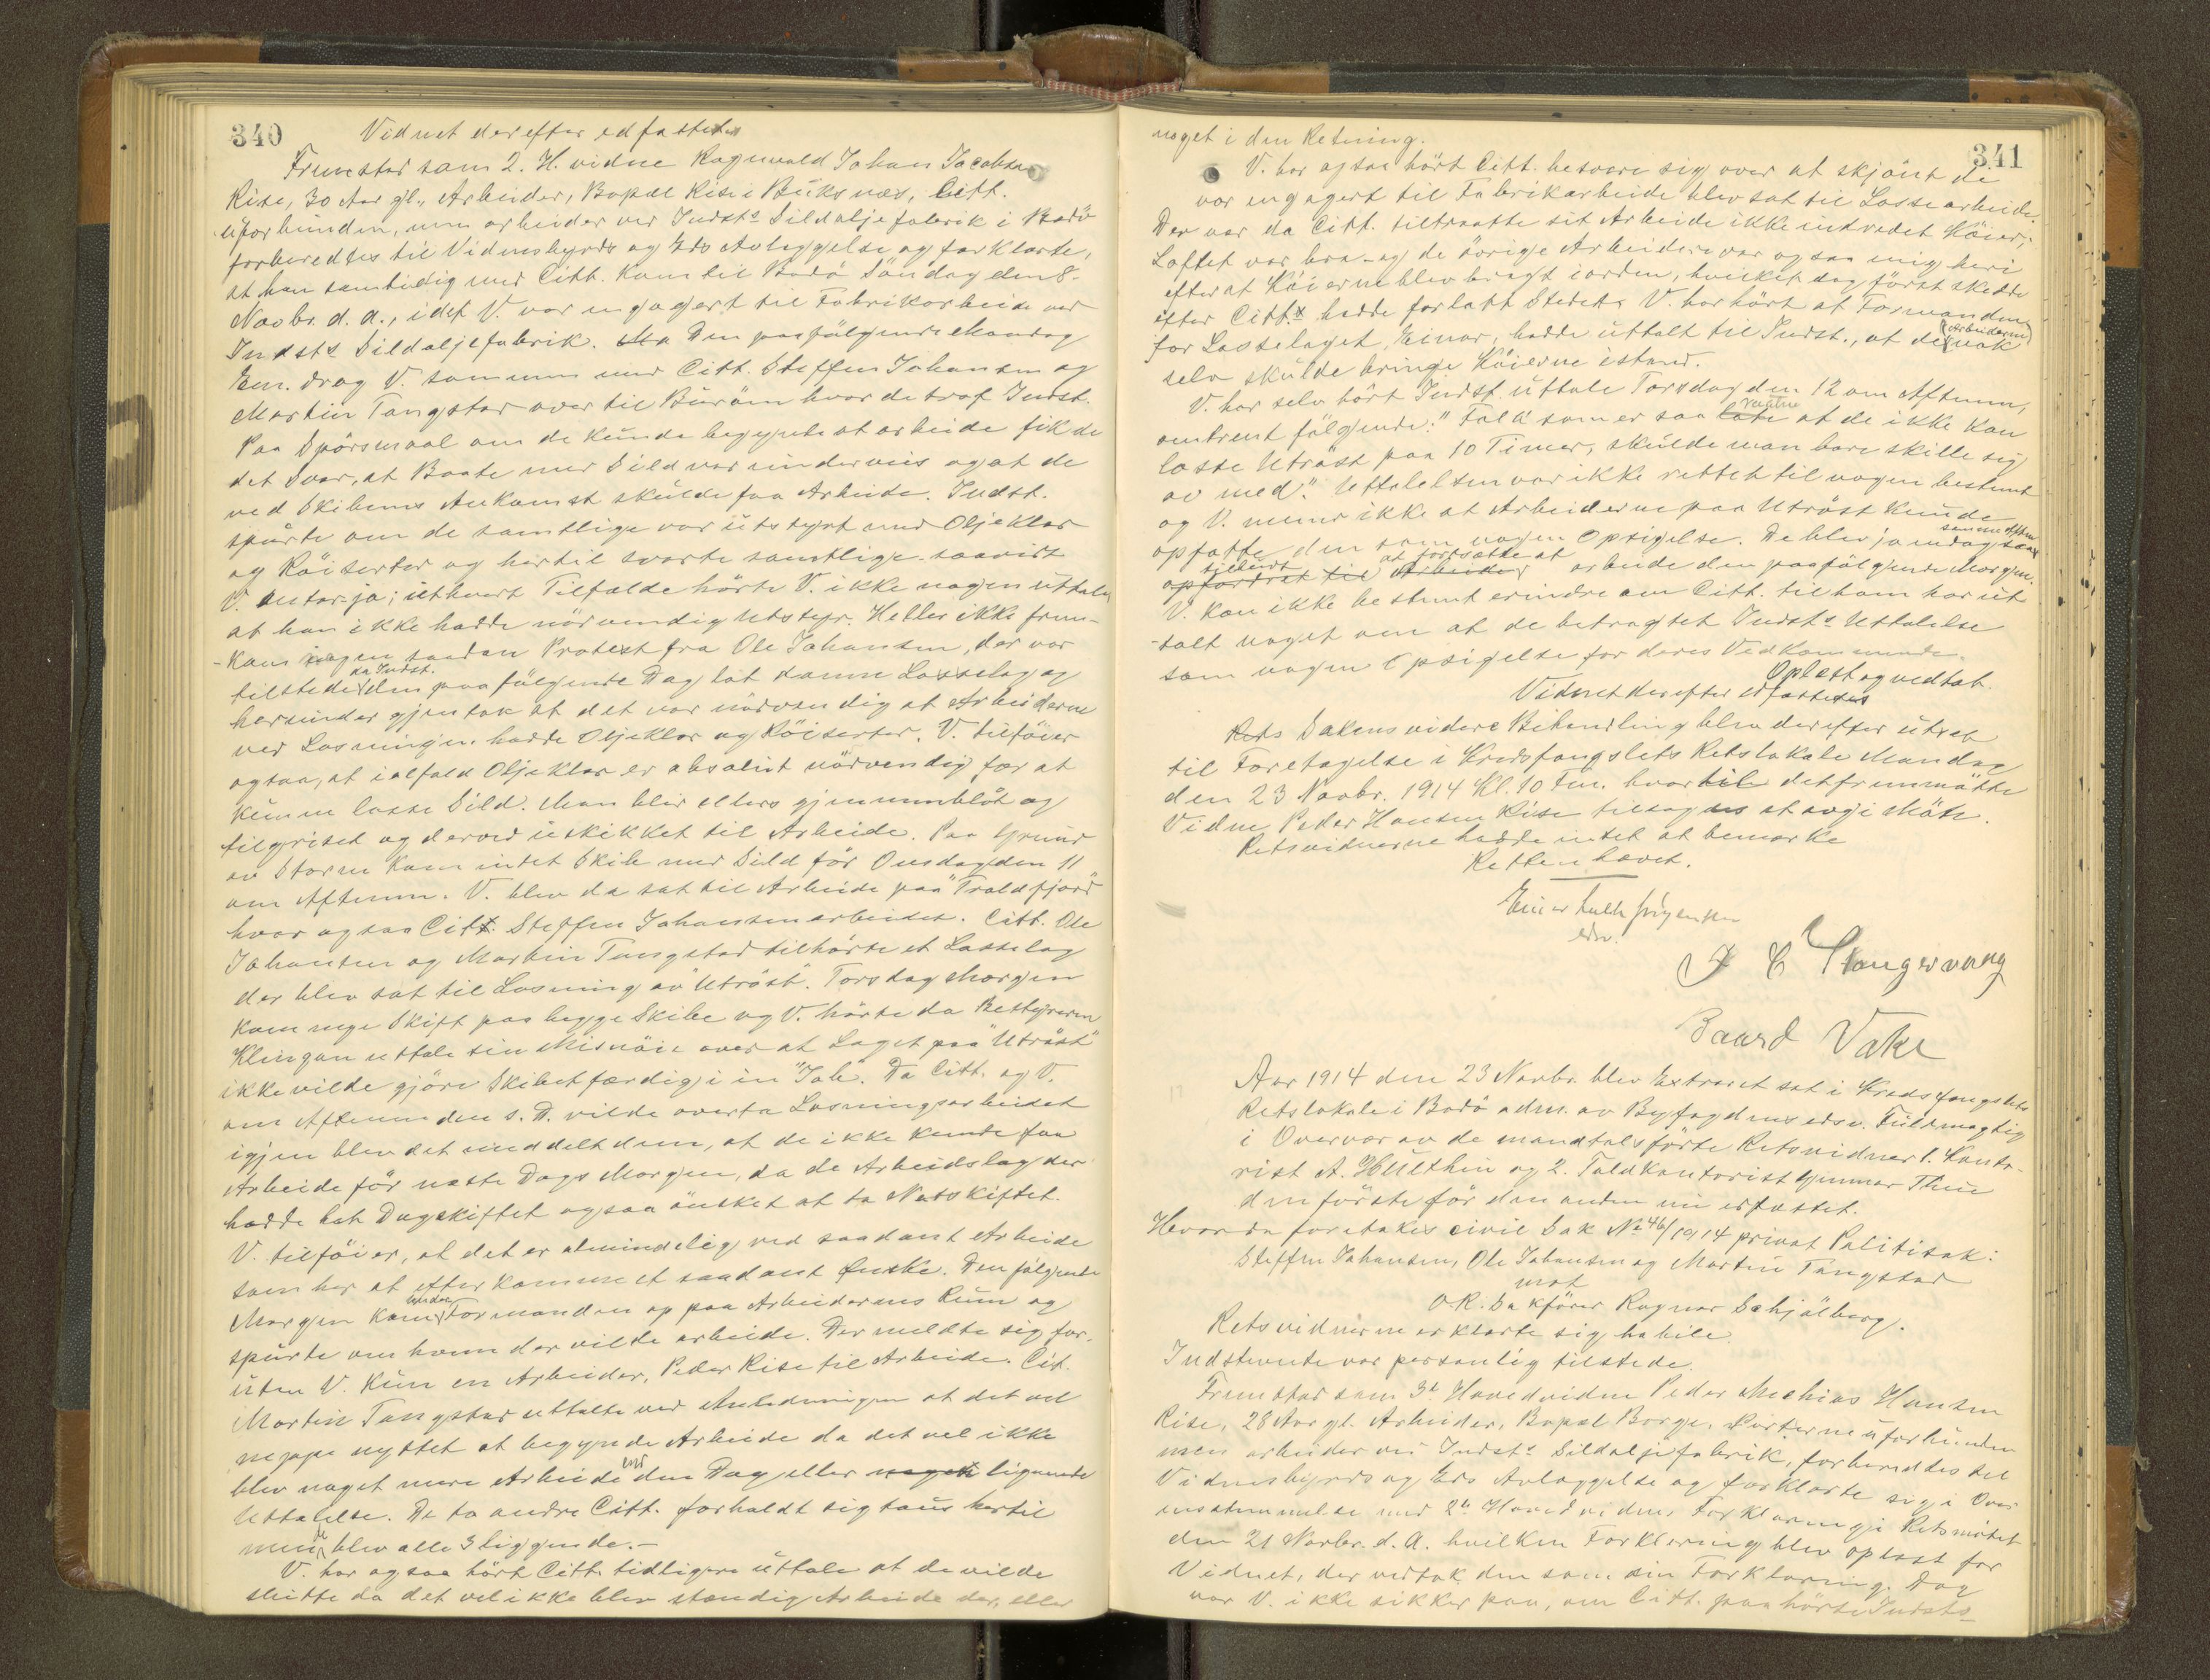 340
Vidnet derefter edfæstedes
Fremstod som 2. H. vidne Ragnvald Johan Jacobsen
Rise, 30 Aar gl., Arbeider, Bopæl Rise i Buksnæs, Citt.
uforbunden, men arbeider ved Indsts Sildoljefabrik i Bodö
forberedtes til Vidnesbyrds og Eds Avlæggelse og forklarte,
at han samtidig med Citt. kom til Bodö Söndag den 8.
Novbr. d. a., idet V. var engagert til Fabrikarbeide ved
Indsts Sildoljefabrik. Den paafölgende Mandag
Em. drog V. sammen med Citt. Steffen Johansen og
Martin Tangstad over til Buröen hvor de traf Indst.
Paa Spörsmaal om de kunde begynde at arbeide fik de
det Svar, at Baate med Sild var underveis og at de
ved Skibenes Ankomst skulde faa Arbeide. Indst.
spurte om de samtlige var utstyrt med Oljeklær
og Röiserter og hertil svarte samtlige saavidt
V. antar ja; ialhvert Tilfælde hörte V. ikke nogen uttale
at han ikke hadde nödvendig Utstyr. Heller ikke frem-
-kom nogen saadan Protest fra Ole Johansen, der var
tilstede da Indst. den paafölgende Dag lot danne Losselag og
herunder gjentok at det var nödvendig at Arbeiderne
ved Losningen hadde Oljeklær og Röiserter. V. tilföier
ogsaa, at ialfald Oljeklær er absolut nödvendig for at
kunne losse Sild. Man blir ellers gjennemblöt og
tilgriset og derved uskikket til Arbeide. Paa Grund
av Storm kom intet Skib med Sild för Onsdag den 11
om Aftenen. V. blev da sat til Arbeide paa "Troldfjord"
hvor ogsaa Citt. Steffen Johansen arbeidet. Citt. Ole
Johansen og Martin Tangstad tilhörte et Losselag
der blev sat til Losning av "Utröst". Torsdag Morgen
kom nye Skift paa begge Skibe og V. hörte da Bestyreren
Klingan uttale sin Misnöie over at Laget paa "Utröst"
ikke vilde gjöre Skibet færdig i en "Job". Da Citt. og V.
om Aftenen den s. D. vilde overta Losningsarbeidet
igjen blev det meddelt dem, at de ikke kunde faa
Arbeide för næste Dags Morgen, da de Arbeidslag der
hadde hat Dagskiftet ogsaa önsket at ta Natskiftet.
V. tilföier, at det er almindelig ved saadant Arbeide
som her at efterkomme et saadant Önske. Den fölgende
Morgen kom Formanden op paa Arbeidernes Rum og
spurte om hvem der vilde arbeide. Der meldte sig for-
uten V. kun en Arbeider, Peder Rise til Arbeide. Cit.
Martin Tangstad uttalte ved Anledningen at det vel
neppe nyttet at begynde Arbeide da det vel ikke
blev noget mere Arbeide end den Dag eller noget lignende
Uttalelse. De to andre Citt. forholdt sig taus hertil
men de blev alle 3 liggende.-
V. har ogsaa hört Citt. tidligere uttale at de vilde
slutte da det vel ikke blev stændig Arbeide der, eller
341
noget i den Retning.
V. har ogsaa hört Citt. besvære sig over at skjönt de
var engagert til Fabrikarbeide blev sat til Lossearbeide.
Der var da Citt. tiltraatte sit Arbeide ikke indredet Köier;
Loftet var bra og de övrige Arbeidere var ogsaa enig heri
efterat Köierne blev bragt iorden, hvilket dog först skedde
efter Citt. hadde forlatt Stedet. V. har hört at Formanden
for Losselaget, Einar, hadde uttalt til Indst., at de (Arbeiderne) nok
selv skulde bringe Köierne istand.
V. har selv hört Indst. uttale Torsdag den 12 om Aftenen,
omtrent fölgende: "Folk som er saa late at de ikke kan
losse Utröst paa 10 Timer, skulde man bare skille sig
av med". Uttalelsen var ikke rettet til nogen bestemt
og V. mener ikke at Arbeiderne paa Utröst kunde
opfatte den som nogen Opsigelse. De blev jo endog samme Aften
tilbudt at fortsætte at opfordret til Arbeider arbeide den paafölgende Morgen.
V. kan ikke bestemt erindre om Citt. til ham har ut-
-talt noget om at de betragtet Indsts Uttalelse
som nogen Opsigelse for deres Vedkommende.
Oplæst og vedtat.
Vidnet derefter edfæstedes
Rets Sakens videre Behandling blev derefter utsat
til Foretagelse i Kredsfængslets Retslokale Mandag
den 23 Novbr. 1914 Kl. 10 Fm. hvortil det fremmötte
Vidne Peder Hansen Rise tilsagdes at avgi Möte.
Retsvidnerne hadde intet at bemerke
Retten hævet.
Einar Falk Jörgensen
edsv.
Baard Vake
Aar 1914 den 23 Novbr. blev Extraret sat i Kredsfængslets
Retslokale i Bodö adm. av Byfogdens edsv. Fuldmægtig
i Overvær av de mandtalsförte Retsvidner 1. Konto-
rist A. Hulthin og 2. Toldkontorist Gunnar Thue
den förste för den anden nu edfæstet.
Hvorda foretokes civil Sak No 46/1914 privat Politisak:
Steffen Johansen, Ole Johansen og Martin Tangstad
mot
O.R. Sakförer Ragnar Schjölberg.
Retsvidnerne erklærte sig habile.
Indstevnte var personlig tilstede.
Fremstod som 3de Hovedvidne Peder Mechias Hansen
Rise, 28 Aar gl. Arbeider, Bopæl Borge, Parterne uforbunden
men arbeider ved Indsts Sildoljefabrik, forberedtes til
Vidnesbyrds og Eds Avlæggelse og forklarte sig i Over-
ensstemmelse med 2det Hovedvidnes Forklaring i Retsmötet
den 21 Novbr. d. A. hvilken Forklaring blev oplæst for
Vidnet, der vedtok den som sin Forklaring. Dog
var V. ikke sikker paa, om Citt. paahörte Indsts